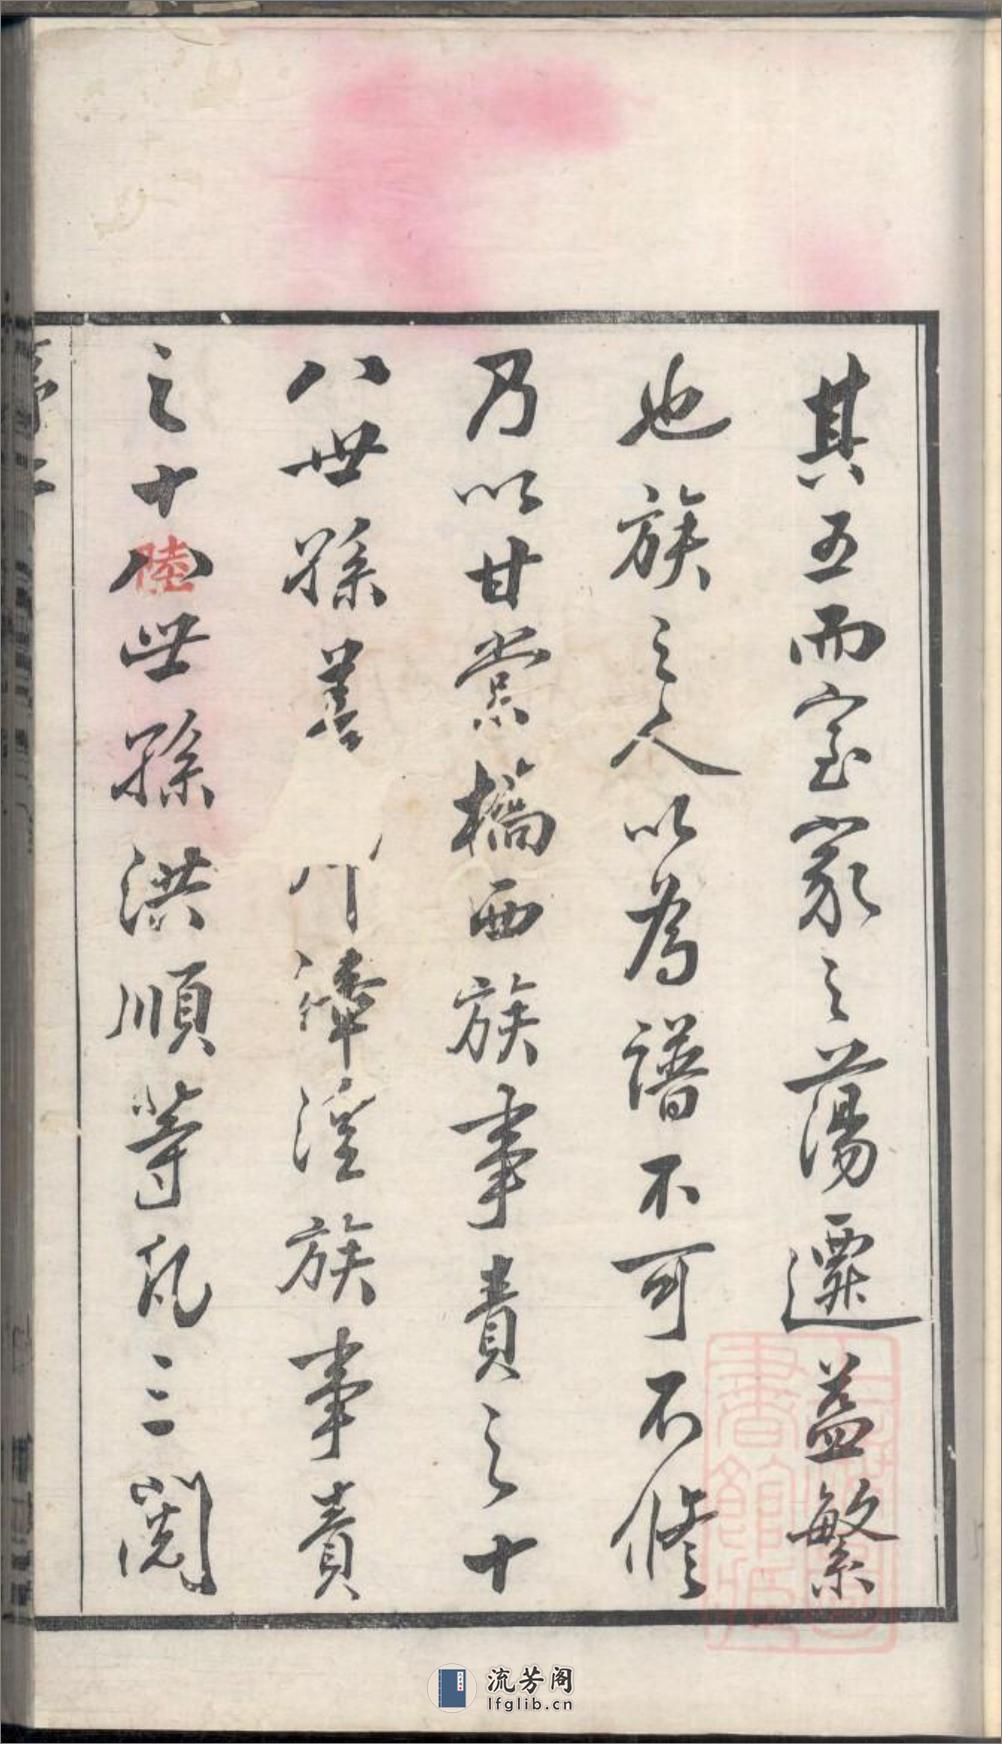 其五而室家之蕩遷益繁
也族之人以為譜不可不修
乃以甘棠橋西族事責之十
八世孫善 漳溪族事責
之十八世孫洪順等凡三閱
陸
序 二
流芳阁
lfglib.cn